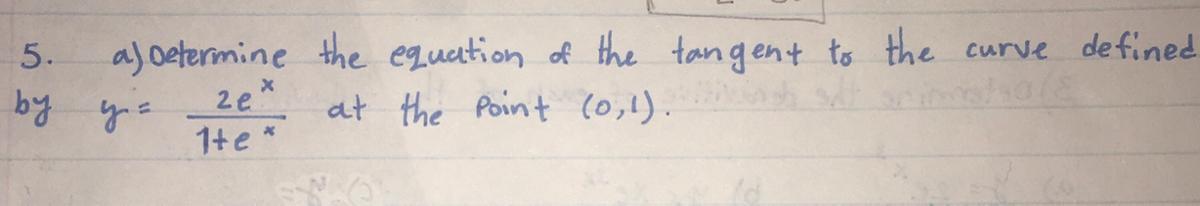 5. a) Determine the equation of the tangent to the curve defined
by y = 2e^x / 1+e^x at the Point (0,1).